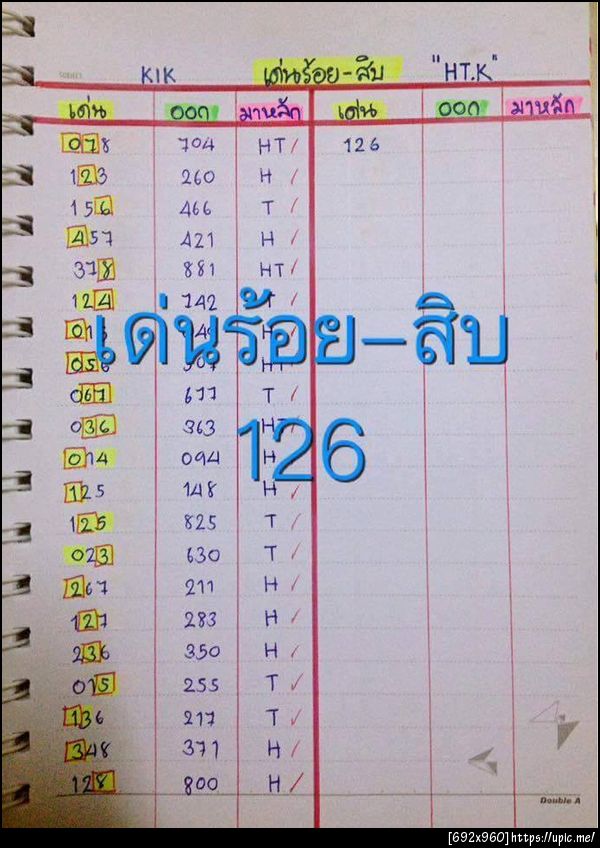 SUBJECT
KIK เด่นร้อย-สิบ "HT.K"
เด่น ออก มาหลัก เด่น ออก มาหลัก
078 704 HT / 126
123 260 H /
156 466 T /
457 421 H /
378 881 HT /
124 742 T /
เด่นร้อย-สิบ
067 677 T /
036 363 HT
126
014 094 H
125 148 H /
125 825 T /
023 630 T /
267 211 H /
127 283 H /
236 350 H /
015 255 T /
136 217 T /
348 371 H /
128 800 H /
Double A
[692x960]https://upic.me/